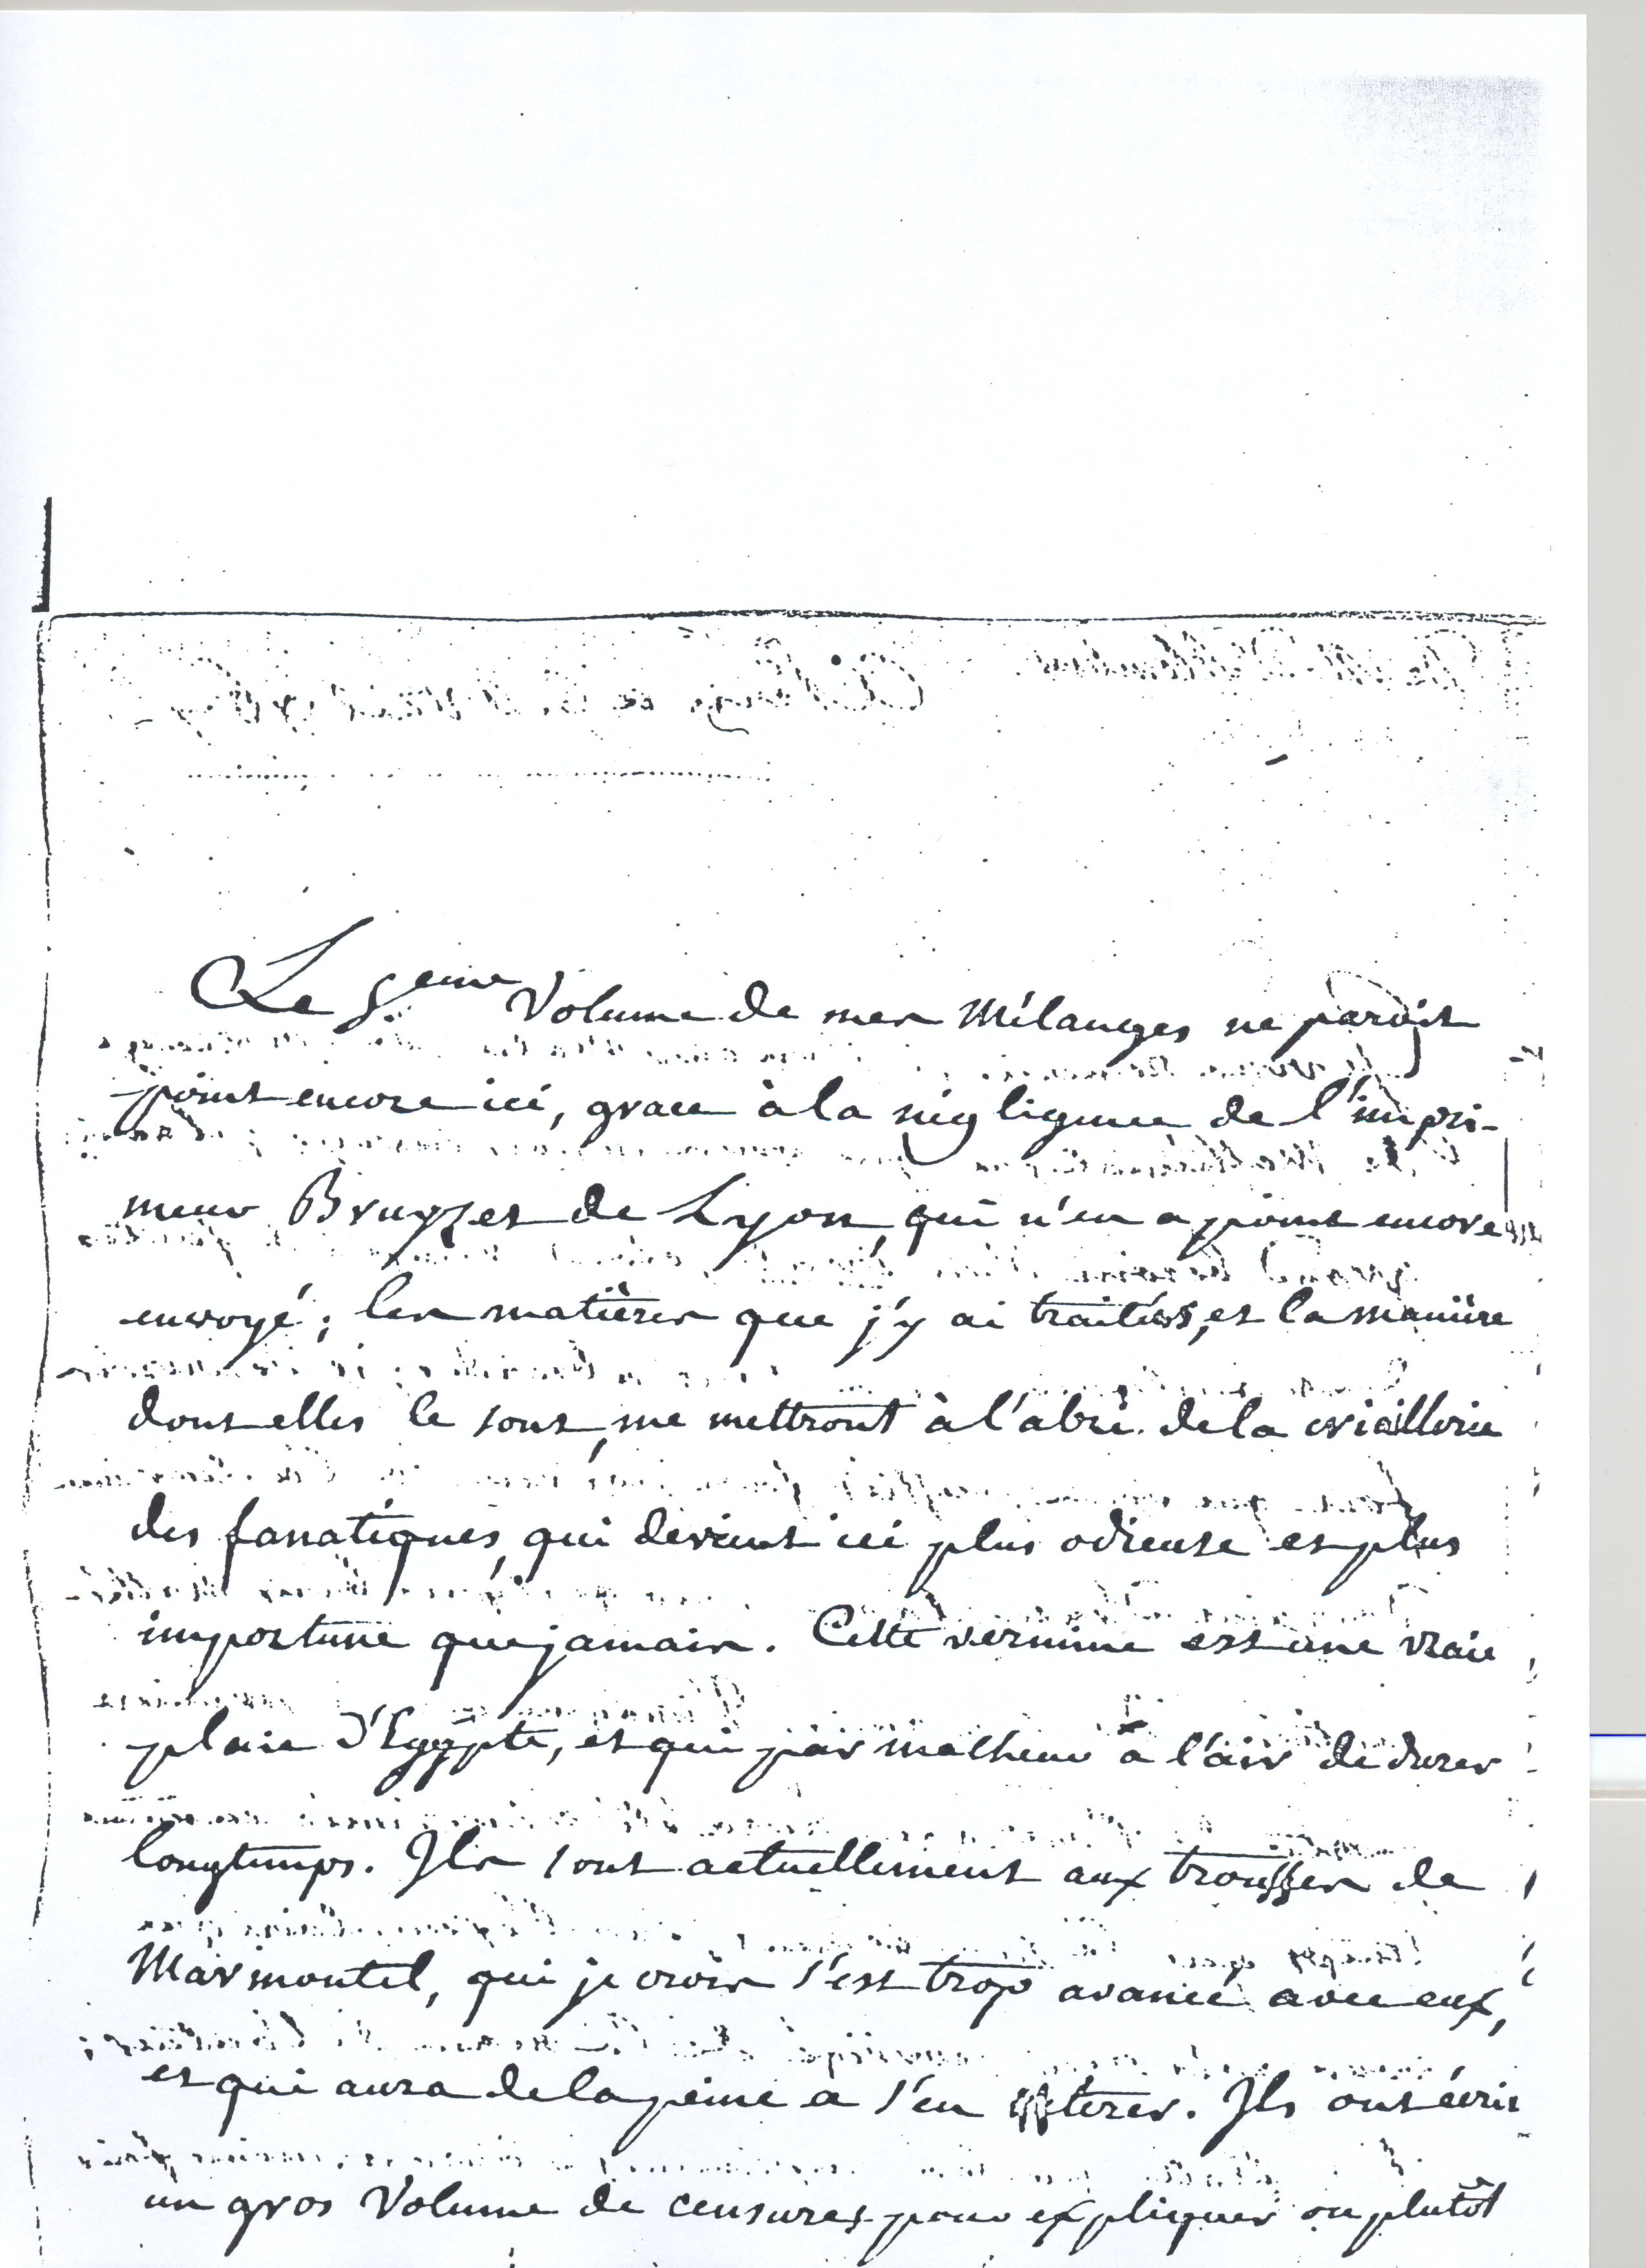 Le 5.eme Volume de mes Mélanges ne paroit
point encore ici, grace à la négligence de l'impri-
meur Bruyset de Lyon, qui n'en a point encore
envoyé; les matières que j'y ai traitées, et la manière
dont elles le sont, me mettront à l'abri de la criaillerie
des fanatiques, qui devient ici plus odieuse et plus
importune que jamais. Cette vermine est une vraie
plaie d'Egypte, et qui par malheur a l'air de durer
longtemps. Ils sont actuellement aux trousses de
Marmontel, qui je crois s'est trop avancé avec eux,
et qui aura de la peine a s'en tirer. Ils ont écrit
un gros Volume de censures pour expliquer ou plutôt